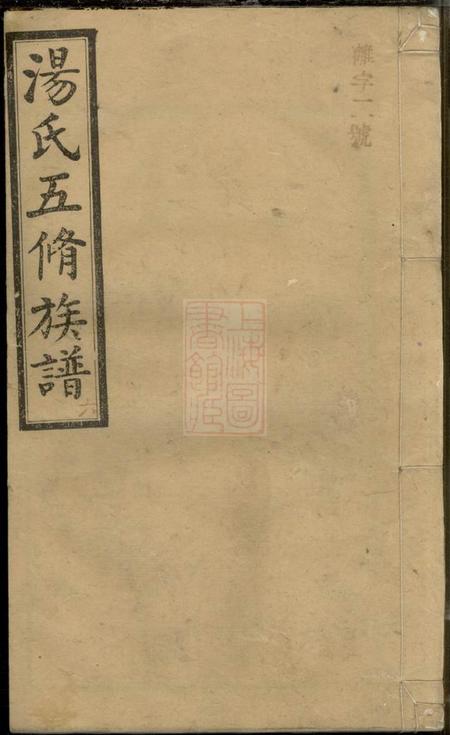 離字一號
湯氏五脩族譜
六
上海圖
書館藏